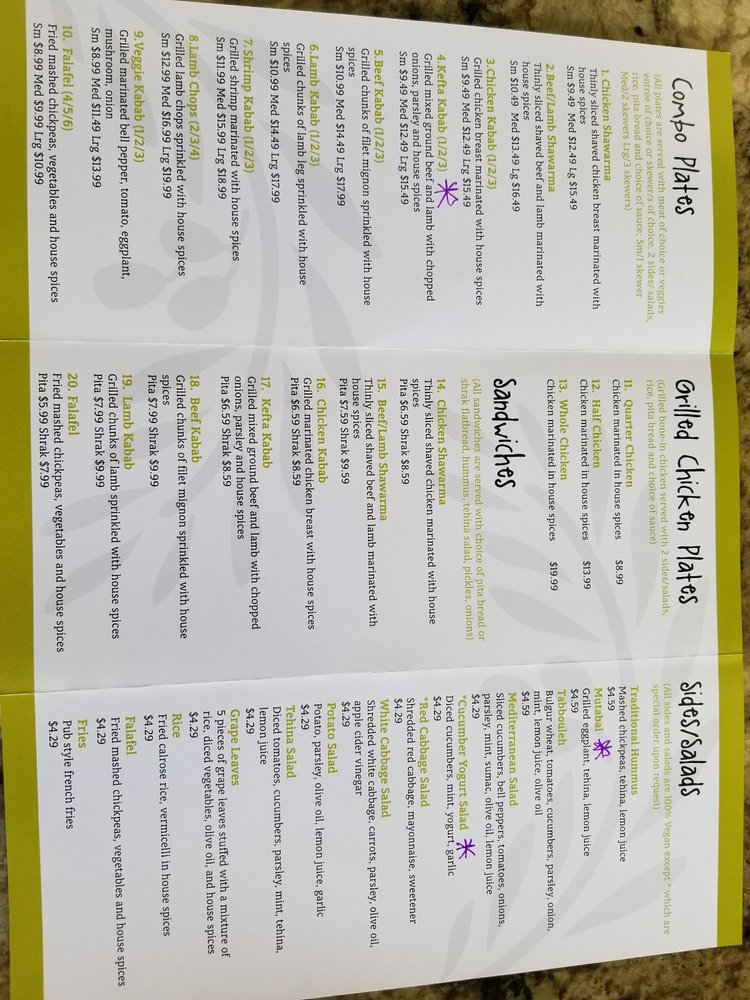 Combo Plates
(All plates are served with meat of choice or veggies
entrée of choice or skewer/s of choice, 2 sides/ salads,
rice, pita bread and choice of sauce. Sm/1 skewer
Med/2 skewers Lrg/3 skewers)
1. Chicken Shawarma
Thinly sliced shaved chicken breast marinated with
house spices
Sm $9.49 Med $12.49 Lg $15.49
2.Beef/Lamb Shawarma
Thinly sliced shaved beef and lamb marinated with
house spices
Sm $10.49 Med $13.49 Lg $16.49
3.Chicken Kabab (1/2/3)
Grilled chicken breast marinated with house spices
Sm $9.49 Med $12.49 Lrg $15.49
4.Kefta Kabab (1/2/3)
Grilled mixed ground beef and lamb with chopped
onions, parsley and house spices
Sm $9.49 Med $12.49 Lrg $15.49
5.Beef Kabab (1/2/3)
Grilled chunks of filet mignon sprinkled with house
spices
Sm $10.99 Med $14.49 Lrg $17.99
6.Lamb Kabab (1/2/3)
Grilled chunks of lamb leg sprinkled with house
spices
Sm $10.99 Med $14.49 Lrg $17.99
7.Shrimp Kabab (1/2/3)
Grilled shrimp marinated with house spices
Sm $11.99 Med $15.99 Lrg $18.99
8.Lamb Chops (2/3/4)
Grilled lamb chops sprinkled with house spices
Sm $12.99 Med $16.99 Lrg $19.99
9.Veggie Kabab (1/2/3)
Grilled marinated bell pepper, tomato, eggplant,
mushroom, onion
Sm $8.99 Med $11.49 Lrg $13.99
10. Falafel (4/5/6)
Fried mashed chickpeas, vegetables and house spices
Sm $8.99 Med $9.99 Lrg $10.99
Grilled Chicken Plates
(Grilled bone-in chicken served with 2 sides/salads,
rice, pita bread and choice of sauce)
11. Quarter Chicken
Chicken marinated in house spices $8.99
12. Half Chicken
Chicken marinated in house spices $13.99
13. Whole Chicken
Chicken marinated in house spices $19.99
Sandwiches
(All sandwiches are served with choice of pita bread or
shrak flatbread, hummus, tehina salad, pickles, onions)
14. Chicken Shawarma
Thinly sliced shaved chicken marinated with house
spices
Pita $6.59 Shrak $8.59
15. Beef/Lamb Shawarma
Thinly sliced shaved beef and lamb marinated with
house spices
Pita $7.59 Shrak $9.59
16. Chicken Kabab
Grilled marinated chicken breast with house spices
Pita $6.59 Shrak $8.59
17. Kefta Kabab
Grilled mixed ground beef and lamb with chopped
onions, parsley and house spices
Pita $6.59 Shrak $8.59
18. Beef Kabab
Grilled chunks of filet mignon sprinkled with house
spices
Pita $7.99 Shrak $9.99
19. Lamb Kabab
Grilled chunks of lamb sprinkled with house spices
Pita $7.99 Shrak $9.99
20. Falafel
Fried mashed chickpeas, vegetables and house spices
Pita $5.99 Shrak $7.99
Sides/Salads
(All sides and salads are 100% Vegan except * which are
special order upon request)
Traditional Hummus
Mashed chickpeas, tehina, lemon juice
$4.59
Mutebal
Grilled eggplant, tehina, lemon juice
$4.59
Tabbouleh
Bulgur wheat, tomatoes, cucumbers, parsley, onion,
mint, lemon juice, olive oil
$4.59
Mediterranean Salad
Sliced cucumbers, bell peppers, tomatoes, onions,
parsley, mint, sumac, olive oil, lemon juice
$4.29
*Cucumber Yogurt Salad
Diced cucumbers, mint, yogurt, garlic
$4.29
*Red Cabbage Salad
Shredded red cabbage, mayonnaise, sweetener
$4.29
White Cabbage Salad
Shredded white cabbage, carrots, parsley, olive oil,
apple cider vinegar
$4.29
Potato Salad
Potato, parsley, olive oil, lemon juice, garlic
$4.29
Tehina Salad
Diced tomatoes, cucumbers, parsley, mint, tehina,
lemon juice
$4.29
Grape Leaves
5 pieces of grape leaves stuffed with a mixture of
rice, diced vegetables, olive oil, and house spices
$4.29
Rice
Fried calrose rice, vermicelli in house spices
$4.29
Falafel
Fried mashed chickpeas, vegetables and house spices
$4.29
Fries
Pub style french fries
$4.29